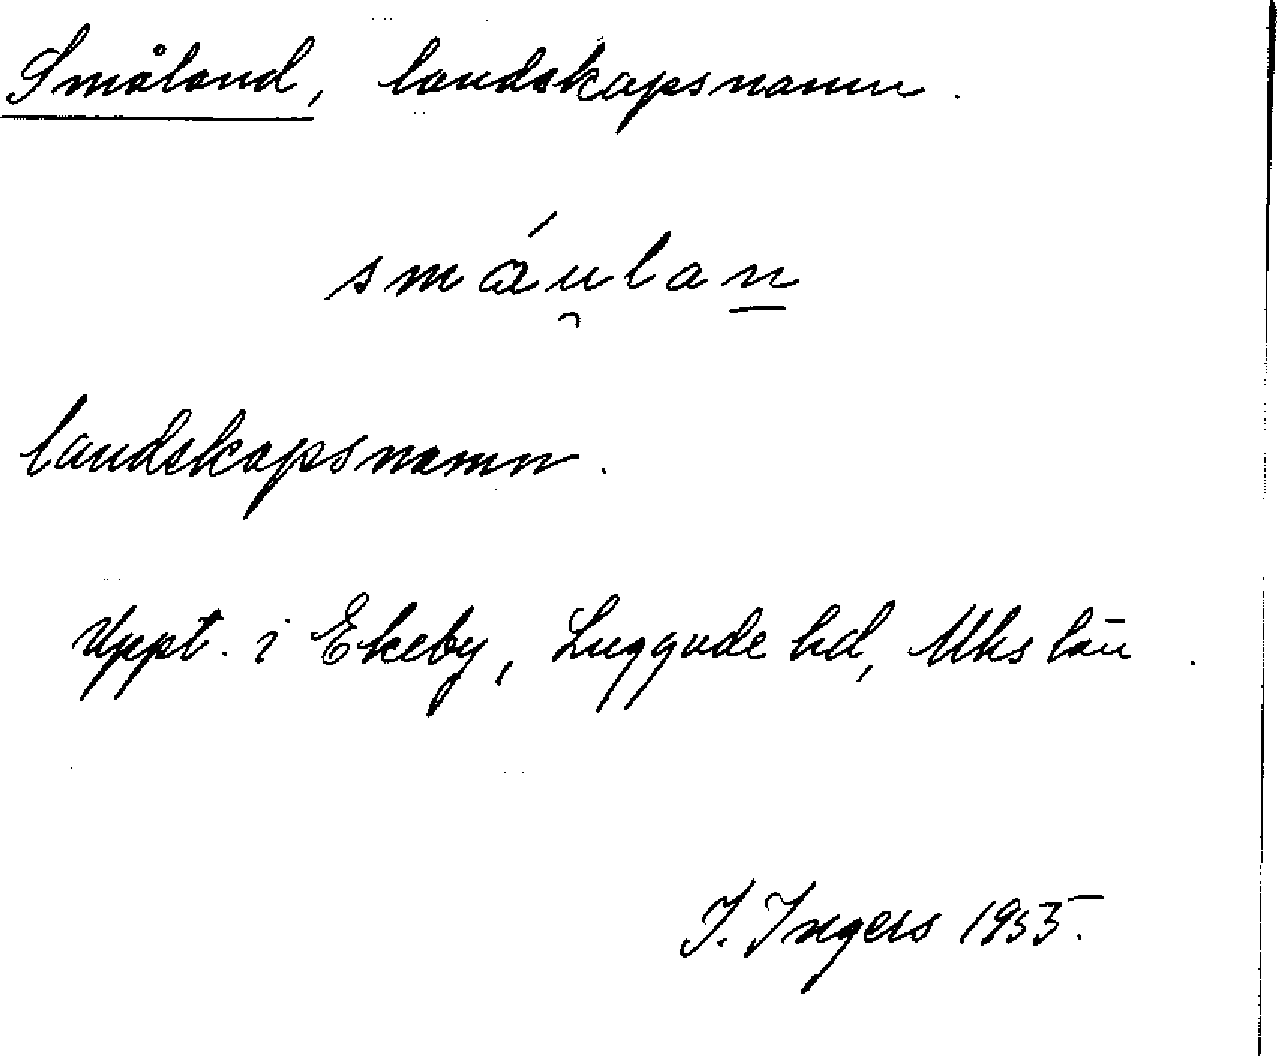 Småland, landskapsnamn.
smáu̯lan̲
landskapsnamn.
Uppt. i Ekeby, Luggude hd, Mhs län.
I. Ingers 1955.